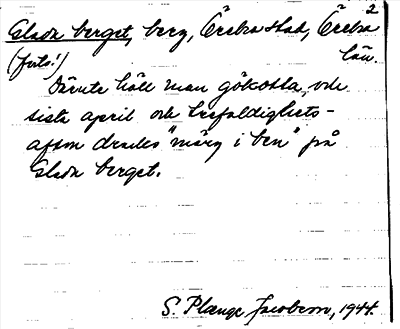 2
Glada berget, berg, Örebro stad, Örebro
(forts.!) län.
Därute höll man gökotta, och
sista april och trefaldighets-
afton dracks "märg i ben" på
Glada berget.
S. Plænge Jacobson, 1944.